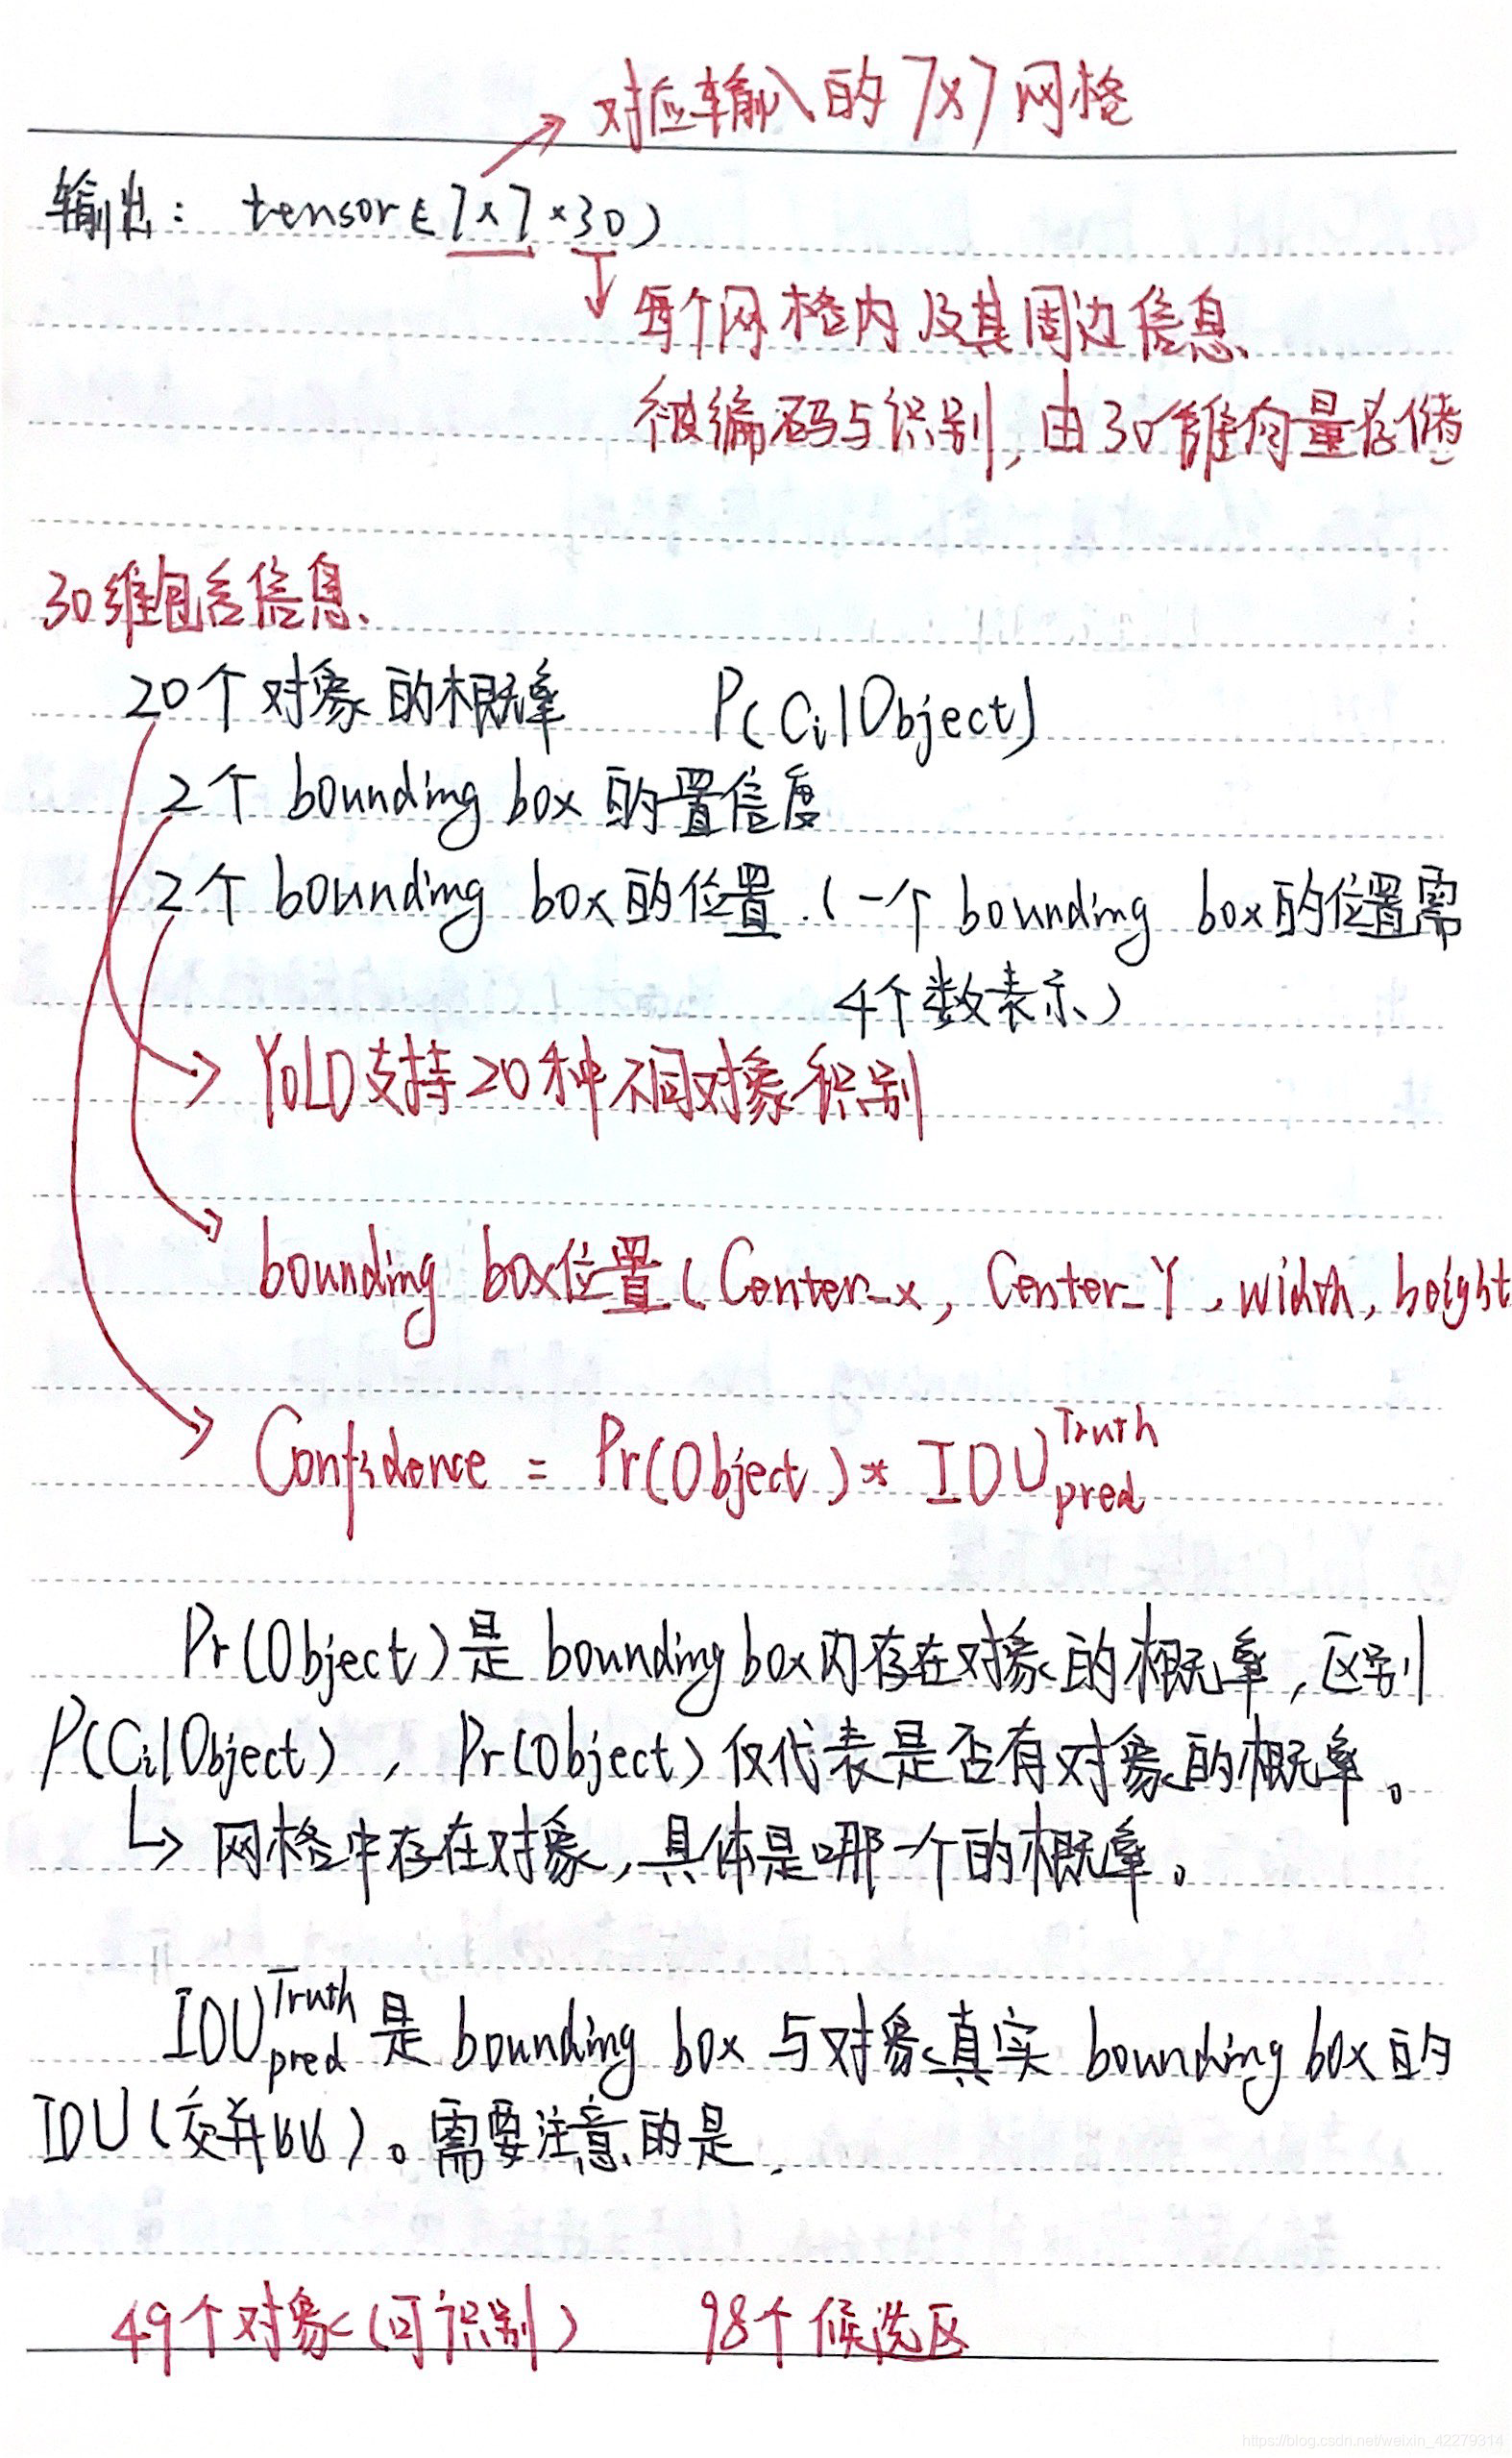 对应输入的7×7网格
输出: tensor(7×7×30)
每个网格内及其周边信息
被编码与识别,由30维向量存储
30维包含信息
20个对象的概率 P(Ci|Object)
2个bounding box的置信度
2个bounding box的位置.(一个bounding box的位置需
4个数表示)
YOLO支持20种不同对象识别
bounding box位置(Center_x, Center_Y, width, height
Confidence = Pr(Object) * IOU^Truth_pred
Pr(Object)是bounding box内存在对象的概率,区别
P(Ci|Object), Pr(Object)仅代表是否有对象的概率。
网格中存在对象,具体是哪一个的概率。
IOU^Truth_pred是bounding box与对象真实bounding box的
IOU(交并比)。需要注意的是,
49个对象(可识别) 98个候选区
https://blog.csdn.net/weixin_42279314